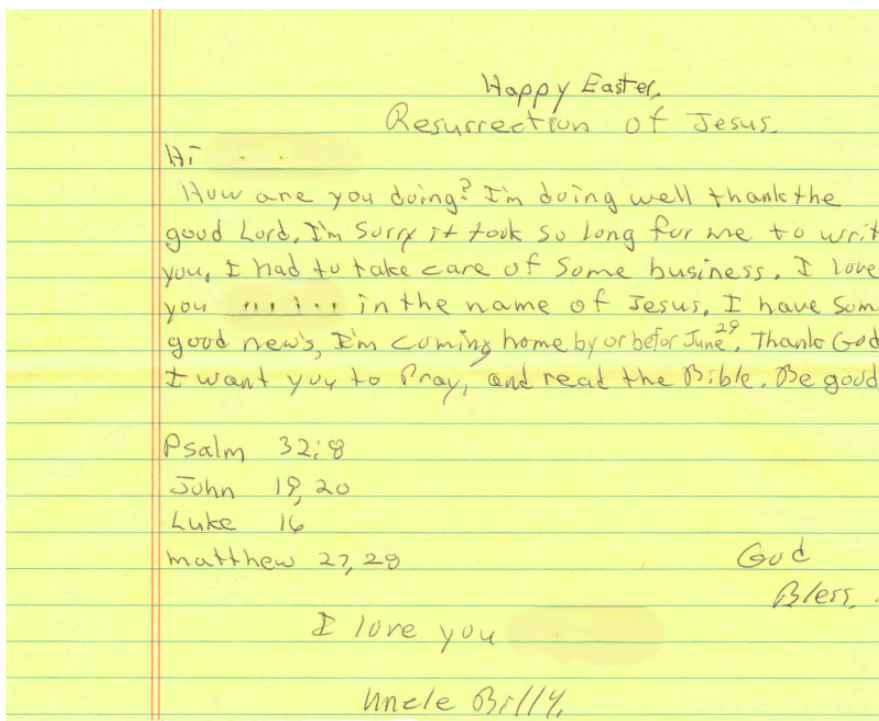 Happy Easter.
Resurrection of Jesus.
Hi
How are you doing? I'm doing well thank the
good Lord, I'm Sorry it took so long for me to writ
you, I had to take care of Some business. I love
you in the name of Jesus, I have Som
good new's, I'm coming home by or befor June 29, Thank God
I want you to Pray, and read the Bible. Be good
Psalm 32:8
John 19, 20
Luke 16
matthew 27, 28
God
Bless.
I love you
Uncle Billy.